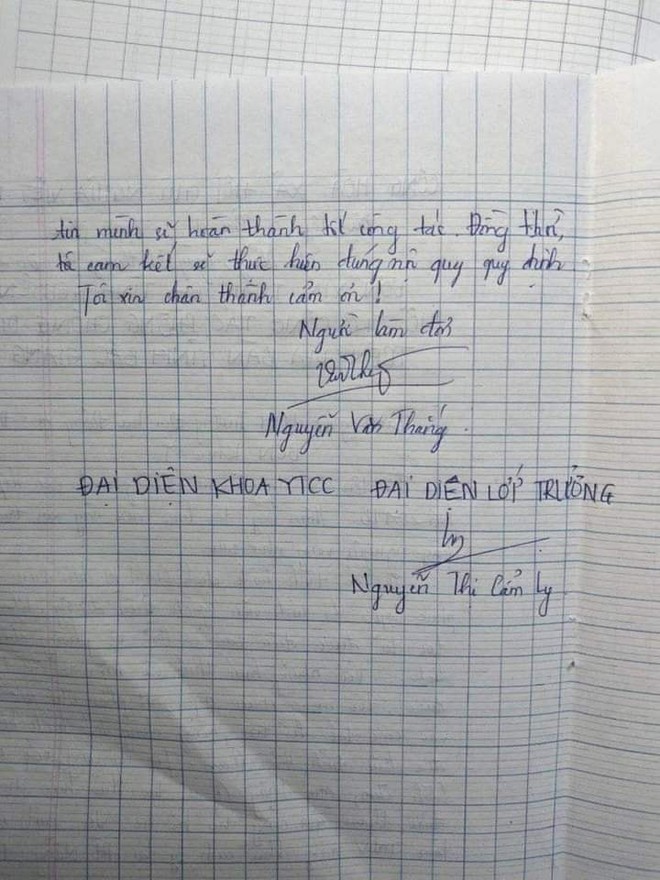 tin mình sẽ hoàn thành tốt công tác. Đồng thời,
tôi cam kết sẽ thực hiện đúng nội quy quy định
Tôi xin chân thành cảm ơn!
Người làm đơn
Nguyễn Văn Thắng.
ĐẠI DIỆN KHOA YTCC ĐẠI DIỆN LỚP TRƯỞNG
Ly
Nguyễn Thị Cẩm Ly